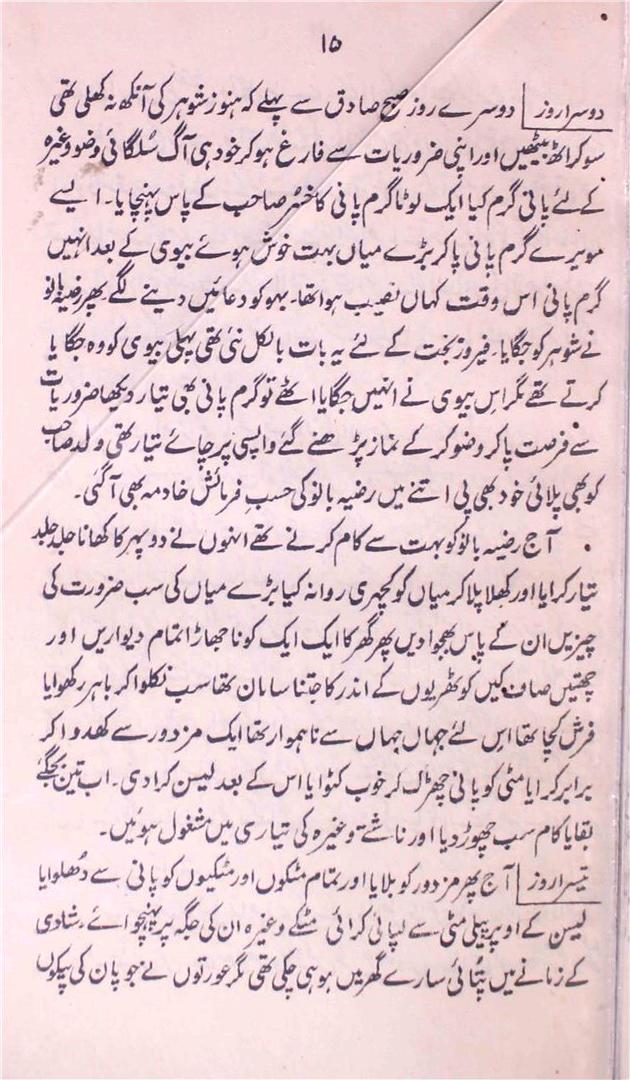 ۱۵
دوسرا روز دوسرے روز صبح صادق سے پہلے کہ ہنوز شوہر کی آنکھ نہ کھلی تھی
سو کر اٹھ بیٹھیں اور اپنی ضروریات سے فارغ ہو کر خود ہی آگ سُلگائی وضو وغیرہ
کے لئے پانی گرم کیا ایک لوٹا گرم پانی کا خسر صاحب کے پاس پہنچایا۔ ایسے
سویرے گرم پانی پا کر بڑے میاں بہت خوش ہوئے بیوی کے بعد انہیں
گرم پانی اس وقت کہاں نصیب ہوا تھا۔ بہو کو دعائیں دینے لگے پھر رضیہ بانو
نے شوہر کو جگایا۔ فیروز بخت کے لئے یہ بات بالکل نئی تھی پہلی بیوی کو وہ جگایا
کرتے تھے مگر اس بیوی نے انہیں جگایا اٹھے تو گرم پانی بھی تیار دیکھا ضروریات
سے فرصت پا کر وضو کر کے نماز پڑھنے گئے واپسی پر چائے تیار تھی والد صاحب
کو بھی پلائی خود بھی پی اتنے میں رضیہ بانو کی حسبِ فرمائش خادمہ بھی آ گئی۔
آج رضیہ بانو کو بہت سے کام کرنے تھے انہوں نے دوپہر کا کھانا جلد جلد
تیار کرایا اور کھلا پلا کر میاں کو کچہری روانہ کیا بڑے میاں کی سب ضرورت کی
چیزیں ان کے پاس بھجوا دیں پھر گھر کا ایک ایک کونا جھاڑا تمام دیواریں اور
چھتیں صاف کیں کوٹھریوں کے اندر کا جتنا سامان تھا سب نکلوا کر باہر رکھوایا
فرش کچا تھا اس لئے جہاں جہاں سے ناہموار تھا ایک مزدور سے کھدوا کر
برابر کرایا مٹی کو پانی چھڑک کر خوب کٹوایا اس کے بعد لیسن کرا دی۔ اب تین بجگئے
بقایا کام سب چھوڑ دیا اور ناشتے وغیرہ کی تیاری میں مشغول ہوئیں۔
تیسرا روز آج پھر مزدور کو بلایا اور تمام مٹکوں اور مٹکیوں کو پانی سے دُھلوایا
لیسن کے اوپر پیلی مٹی سے لپائی کرائی مٹکے وغیرہ ان کی جگہ پر پہنچوائے، شادی
کے زمانے میں پُتائی سارے گھر میں ہو ہی چکی تھی مگر عورتوں نے جو پان کی پیکوں